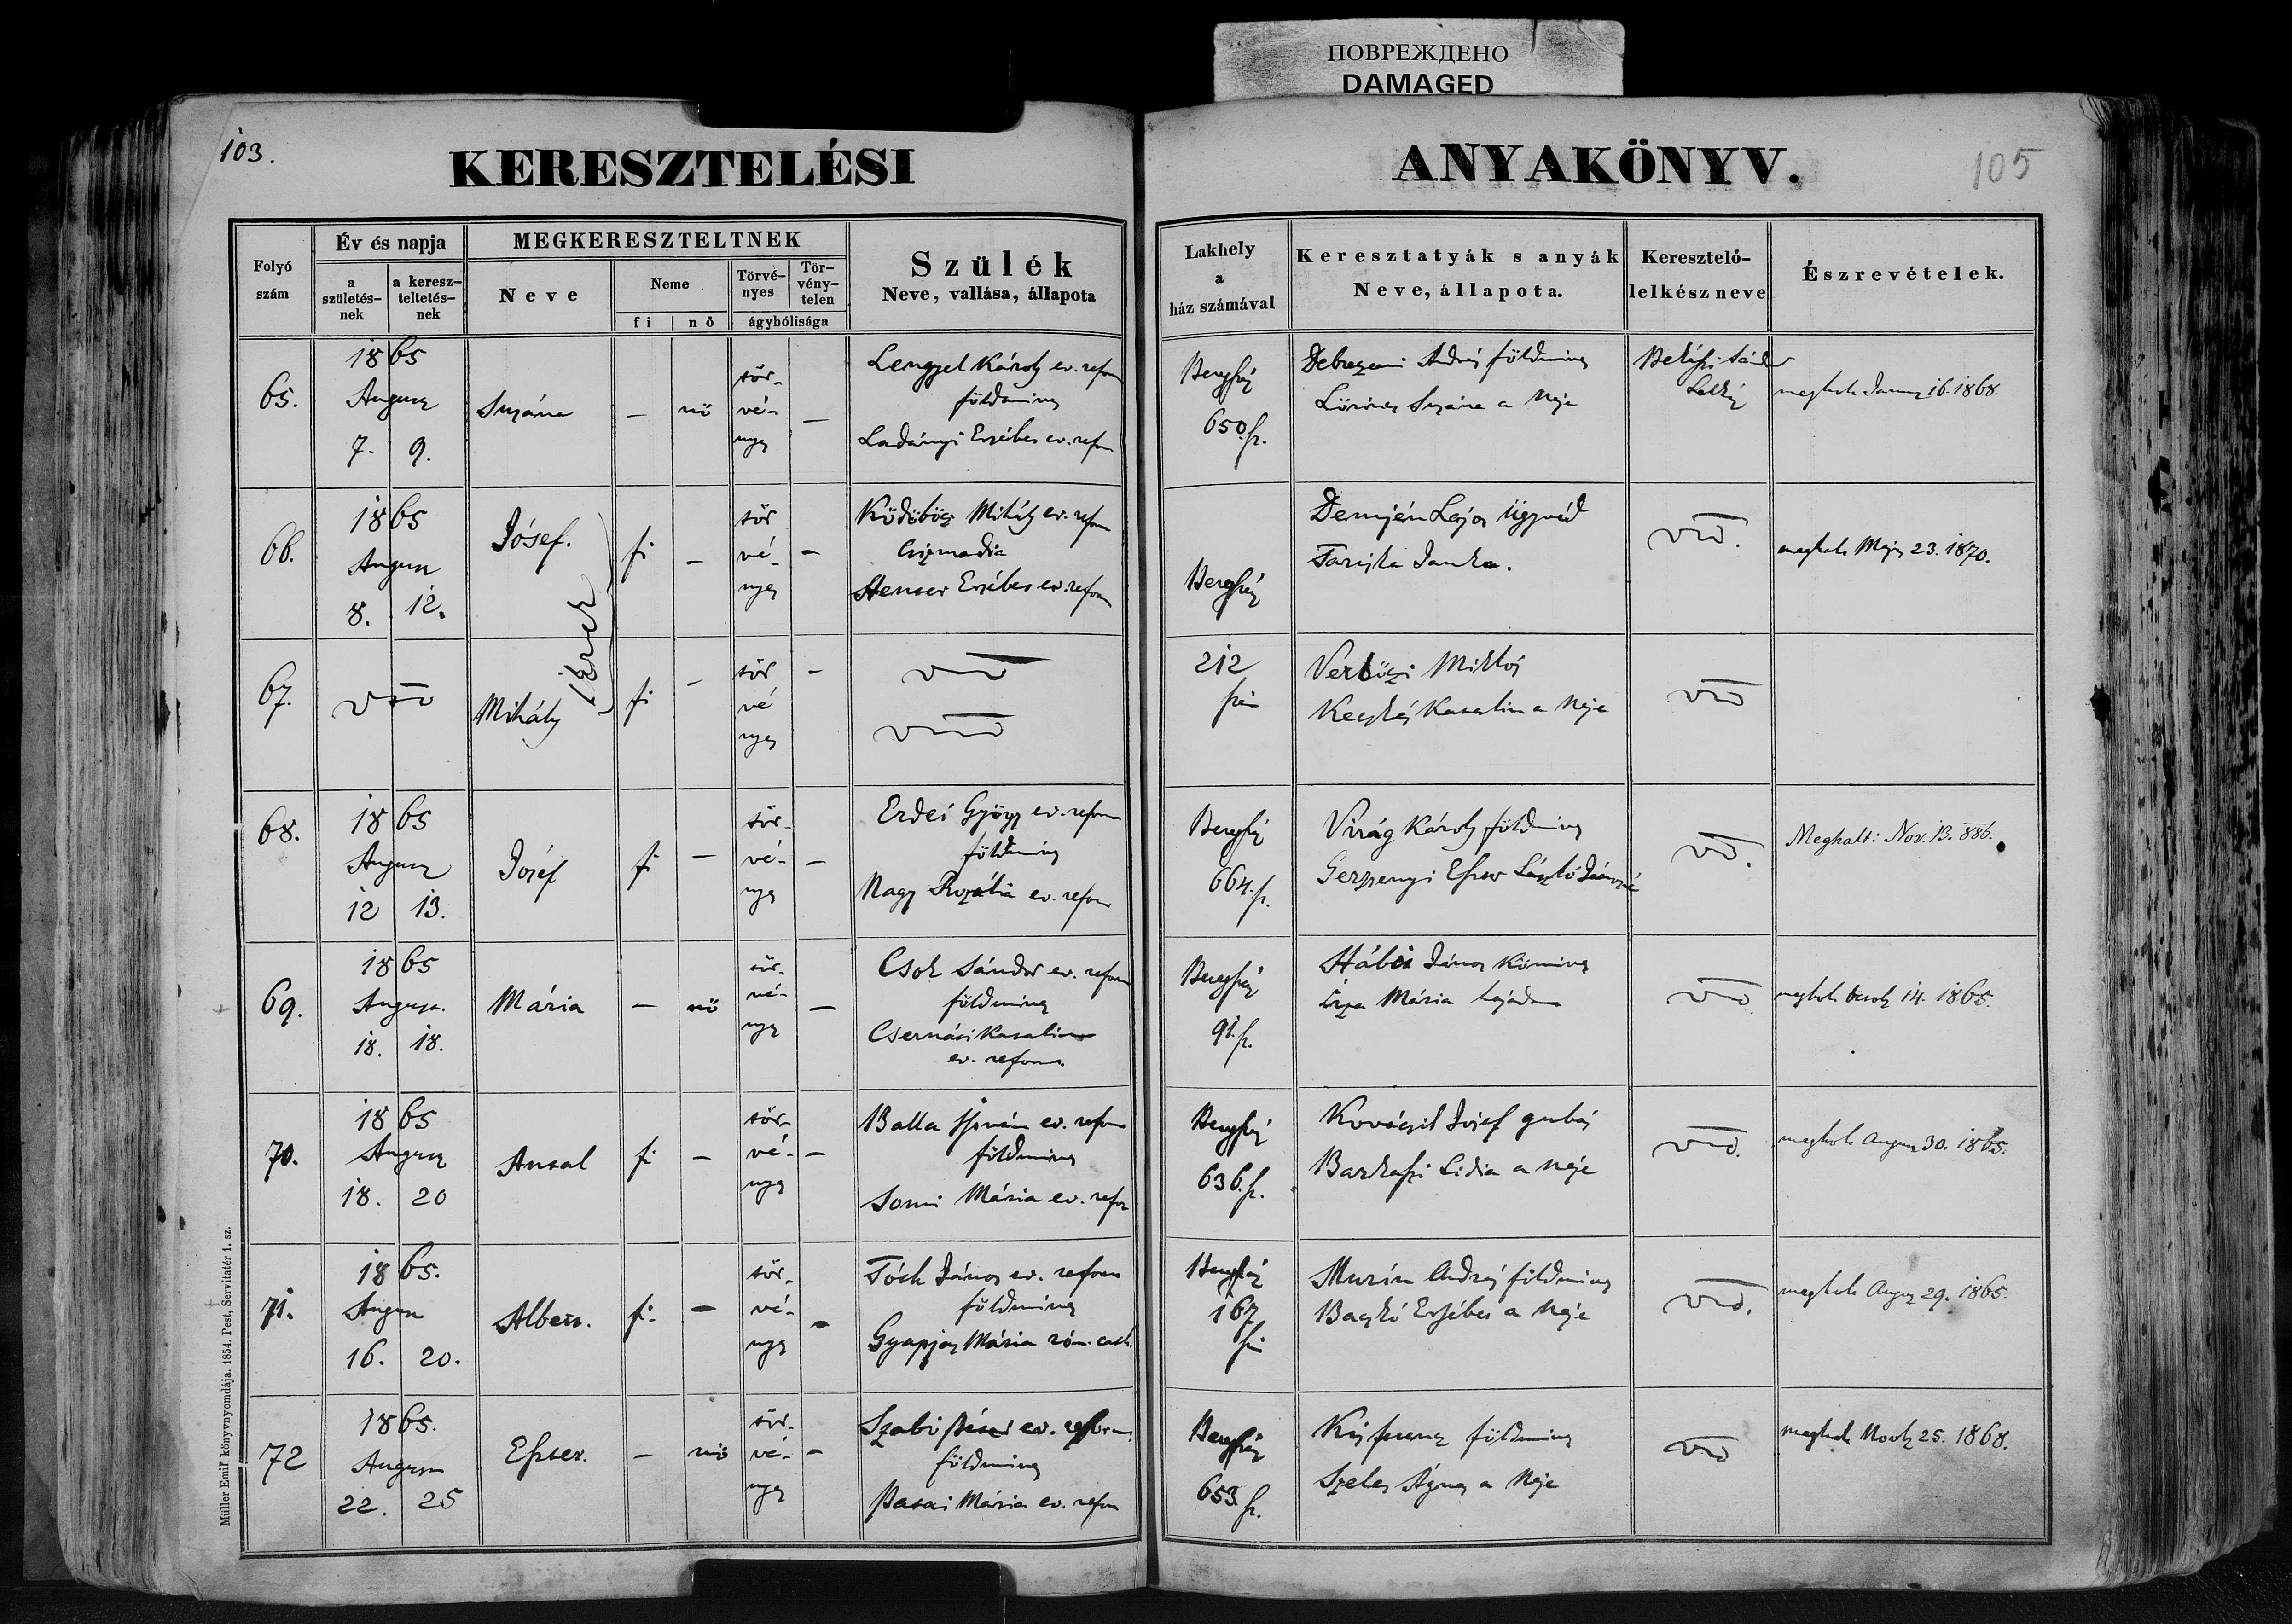 ПОВРЕЖДЕНО
DAMAGED
103.
KERESZTELÉSI
ANYAKÖNYV.
105
Folyó szám
Év és napja
a születés-nek
a keresz-teltetés-nek
MEGKERESZTELTNEK
Neve
Neme
fi | nő
Törvé-nyes
Tör-vény-telen
ágybólisága
Szülék
Neve, vallása, állapota
Lakhely
a
ház számával
Keresztatyák s anyák
Neve, állapota.
Keresztelő-
lelkész neve
Észrevételek.
65.
1865
August
7. 9.
Suzána
— nő
tör-
vé-
nyes
—
Lengyel Károly ev. reform
földmives
Ladányi Erzsébet ev. reform
Beregszász
650. sz.
Debreczeni András földmives
Lőrincz Suzána a Neje
Lelkész
megholt Januar 16. 1868.
66.
1865
August
8. 12.
József.
Ikrek
fi —
tör
vé-
nyes
—
Mihály ev. reform
Csizmadia
Erzsébet ev. reform
Beregszász
Demjén Lajos Ügyvéd
vid.
megholt Majus 23. 1870.
67.
vid
Mihály
fi —
tör
vé
nyes
—
vid
vid
212
szám
Verbőczi Miklós
Kecskés Katalin a Neje
vid
68.
1865
August
12 13.
József
fi —
tör-
vé-
nyes
—
Erdei György ev. reform
földmives
Nagy Rozália ev. reform
Beregszász
664. sz.
Virág Károly földmives
Gerzsenyi Eszter László Jánosné
vid.
Meghalt: Nov. 13. 886.
69.
1865
August.
18. 18.
Mária
— nő
tör-
vé-
nyes
—
Csok Sándor ev. reform
földmives
Csernási Katalin
ev. reform.
Beregszász
91. sz.
János Kőmives
Mária hajadon
vid
14. 1865.
70.
1865
August
18. 20
Antal
fi —
tör-
vé-
nyes
—
Balla István ev. reform
földmives
Somi Mária ev. reform
Beregszász
636. sz.
József gubás
Barkaszi Lidia a neje
vid.
megholt August 30. 1865.
71.
1865.
August
16. 20.
Albert.
fi. —
tör-
vé-
nyes
—
Tóth János ev. reform
földmives
Gyapjas Mária róm. cath.
Beregszász
167
szám
Murin András földmives
Bacskó Erzsébet a Neje
vid.
megholt August 29. 1865.
72
1865.
August
22. 25
Eszter.
— nő
tör-
vé-
nyes
—
Szabó Péter ev. reform.
földmives
Patai Mária ev. reform
Beregszász
653 sz.
Kis Ferencz földmives
Szeles Ágnes a Neje
vid
25. 1868.
Müller Emil könyvnyomdája. 1854. Pest, Servitatér 1. sz.